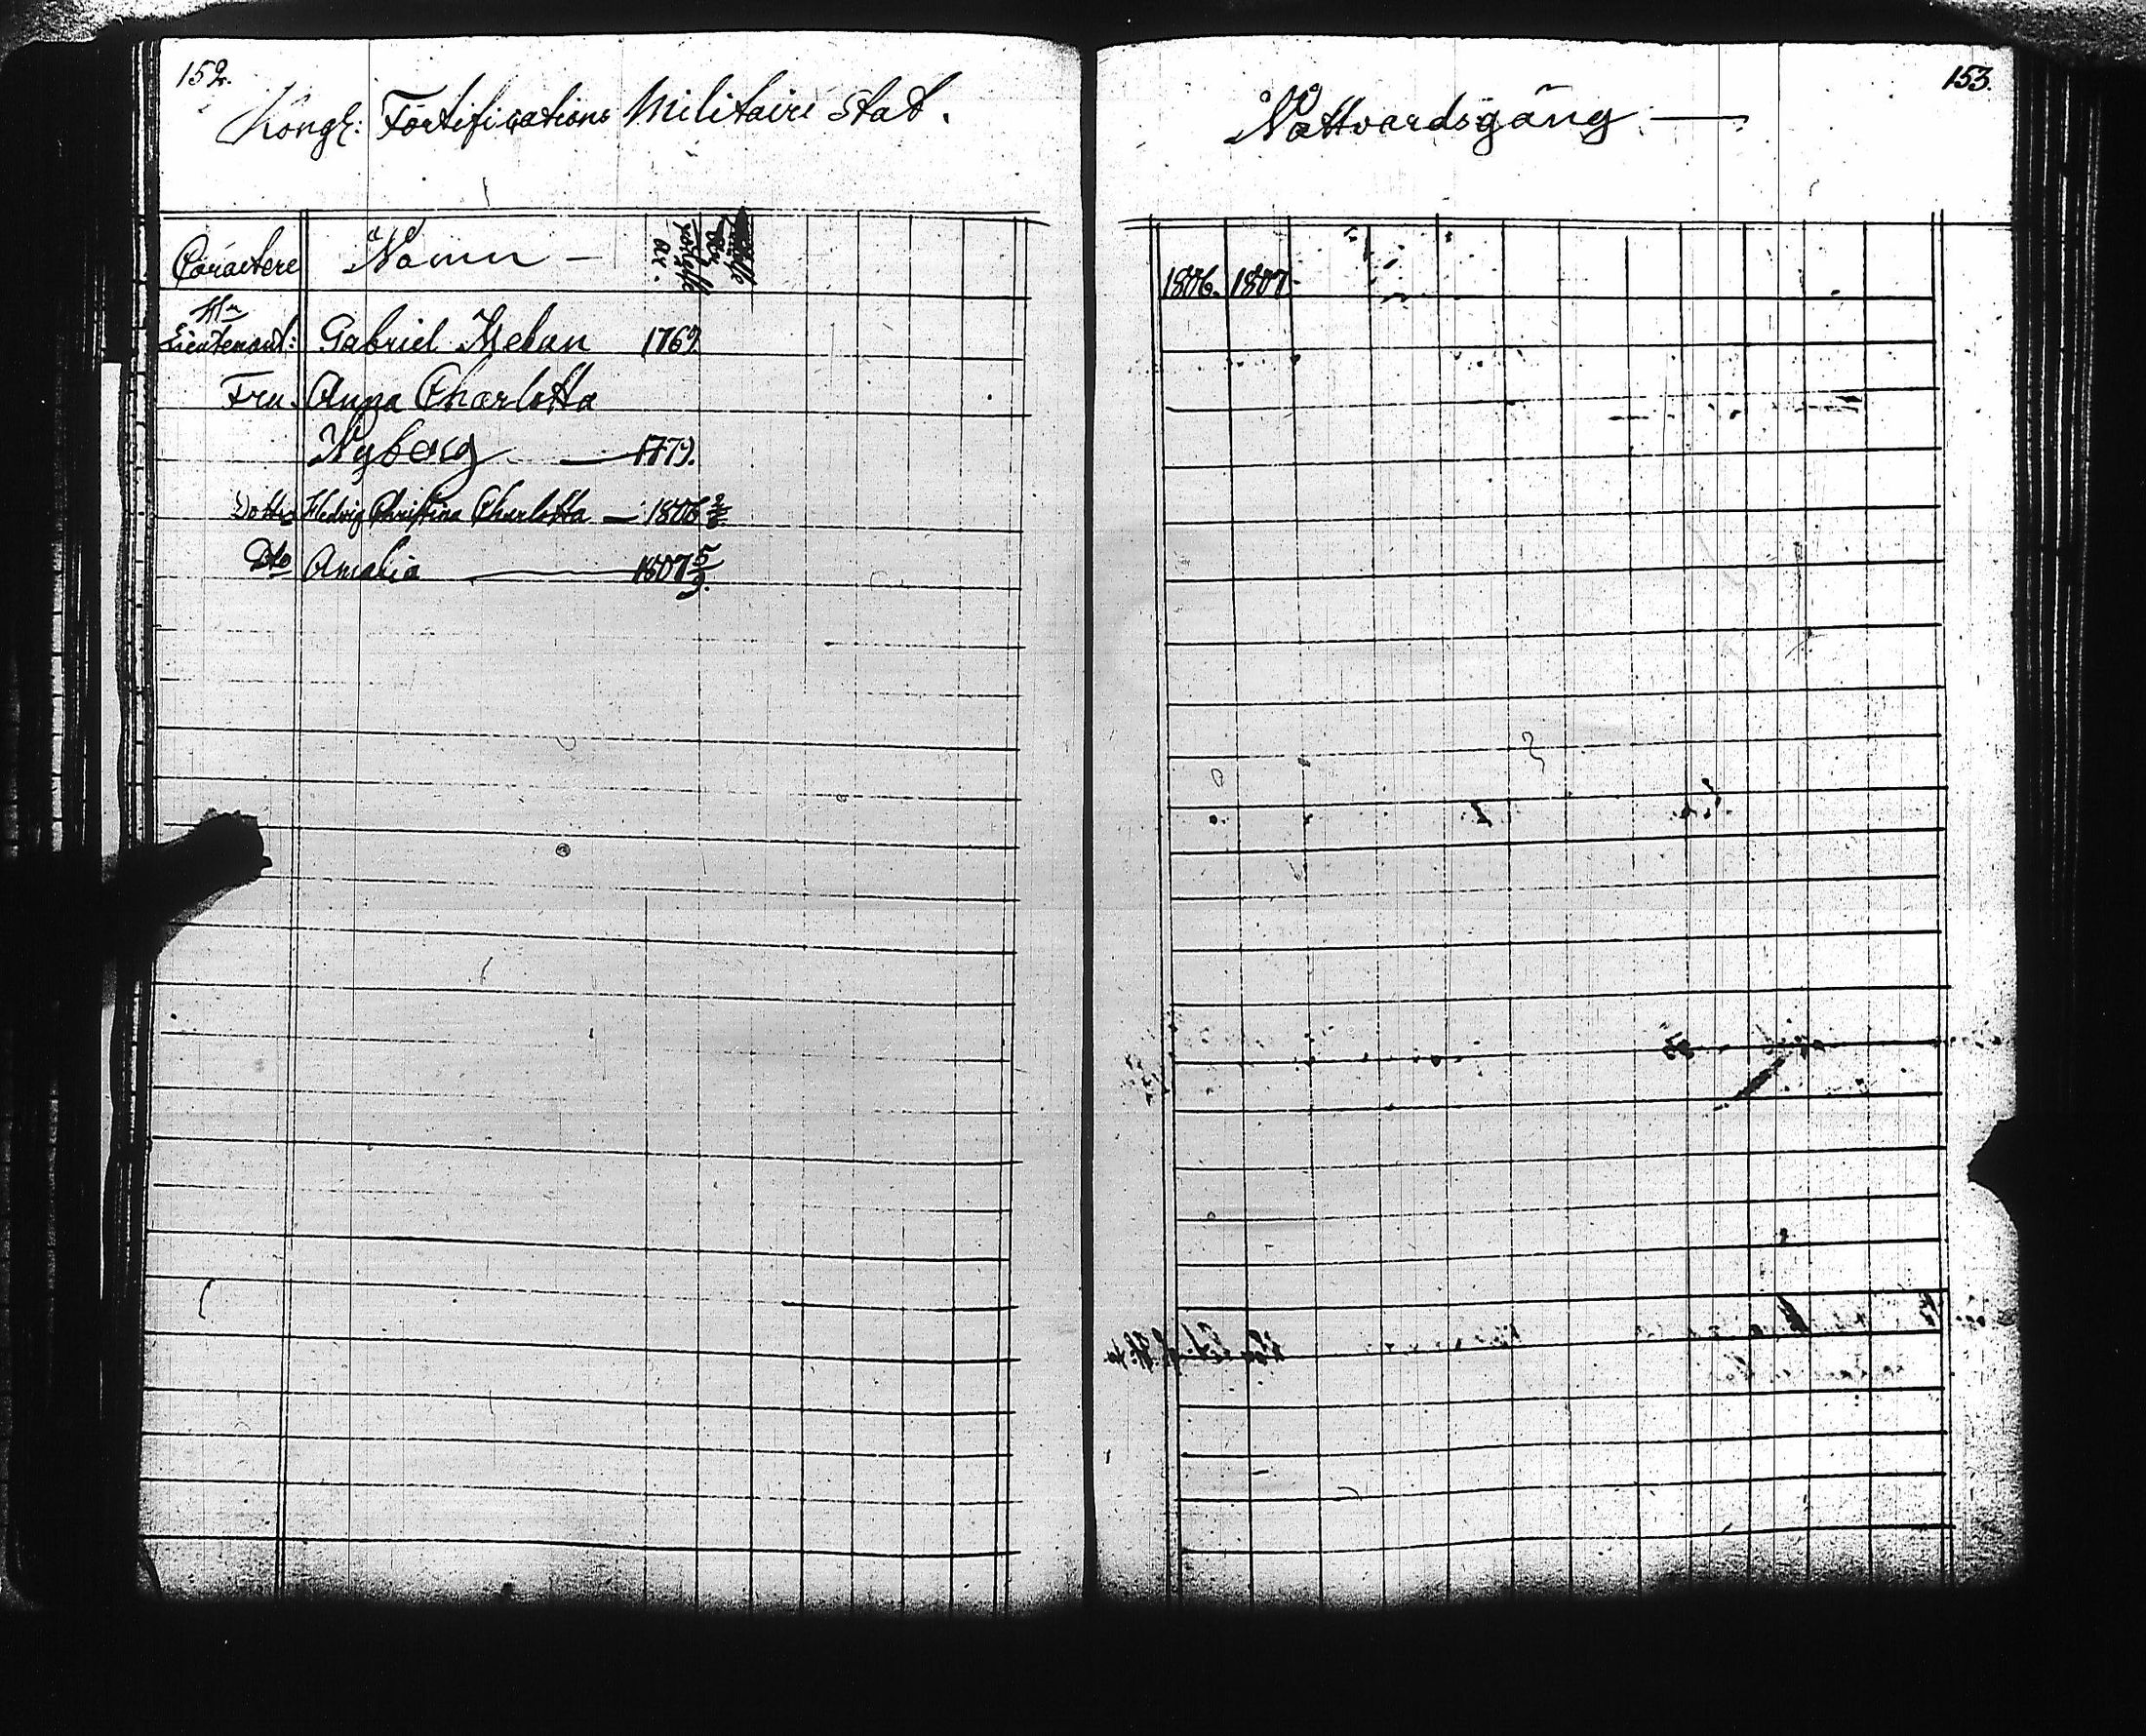 152.
Kongl: Fortifications Militaire Stat.
Caractere Namn —
födelse år.
Hr
Lieutenant: Gabriel 1769.
Fru. Anna Charlotta
Nyberg — 1779.
Dottr Hedvig Christina Charlotta — 1806
Dto Amalia — 1807 5/9.
153.
Nattvardsgång. —
1806. 1807.